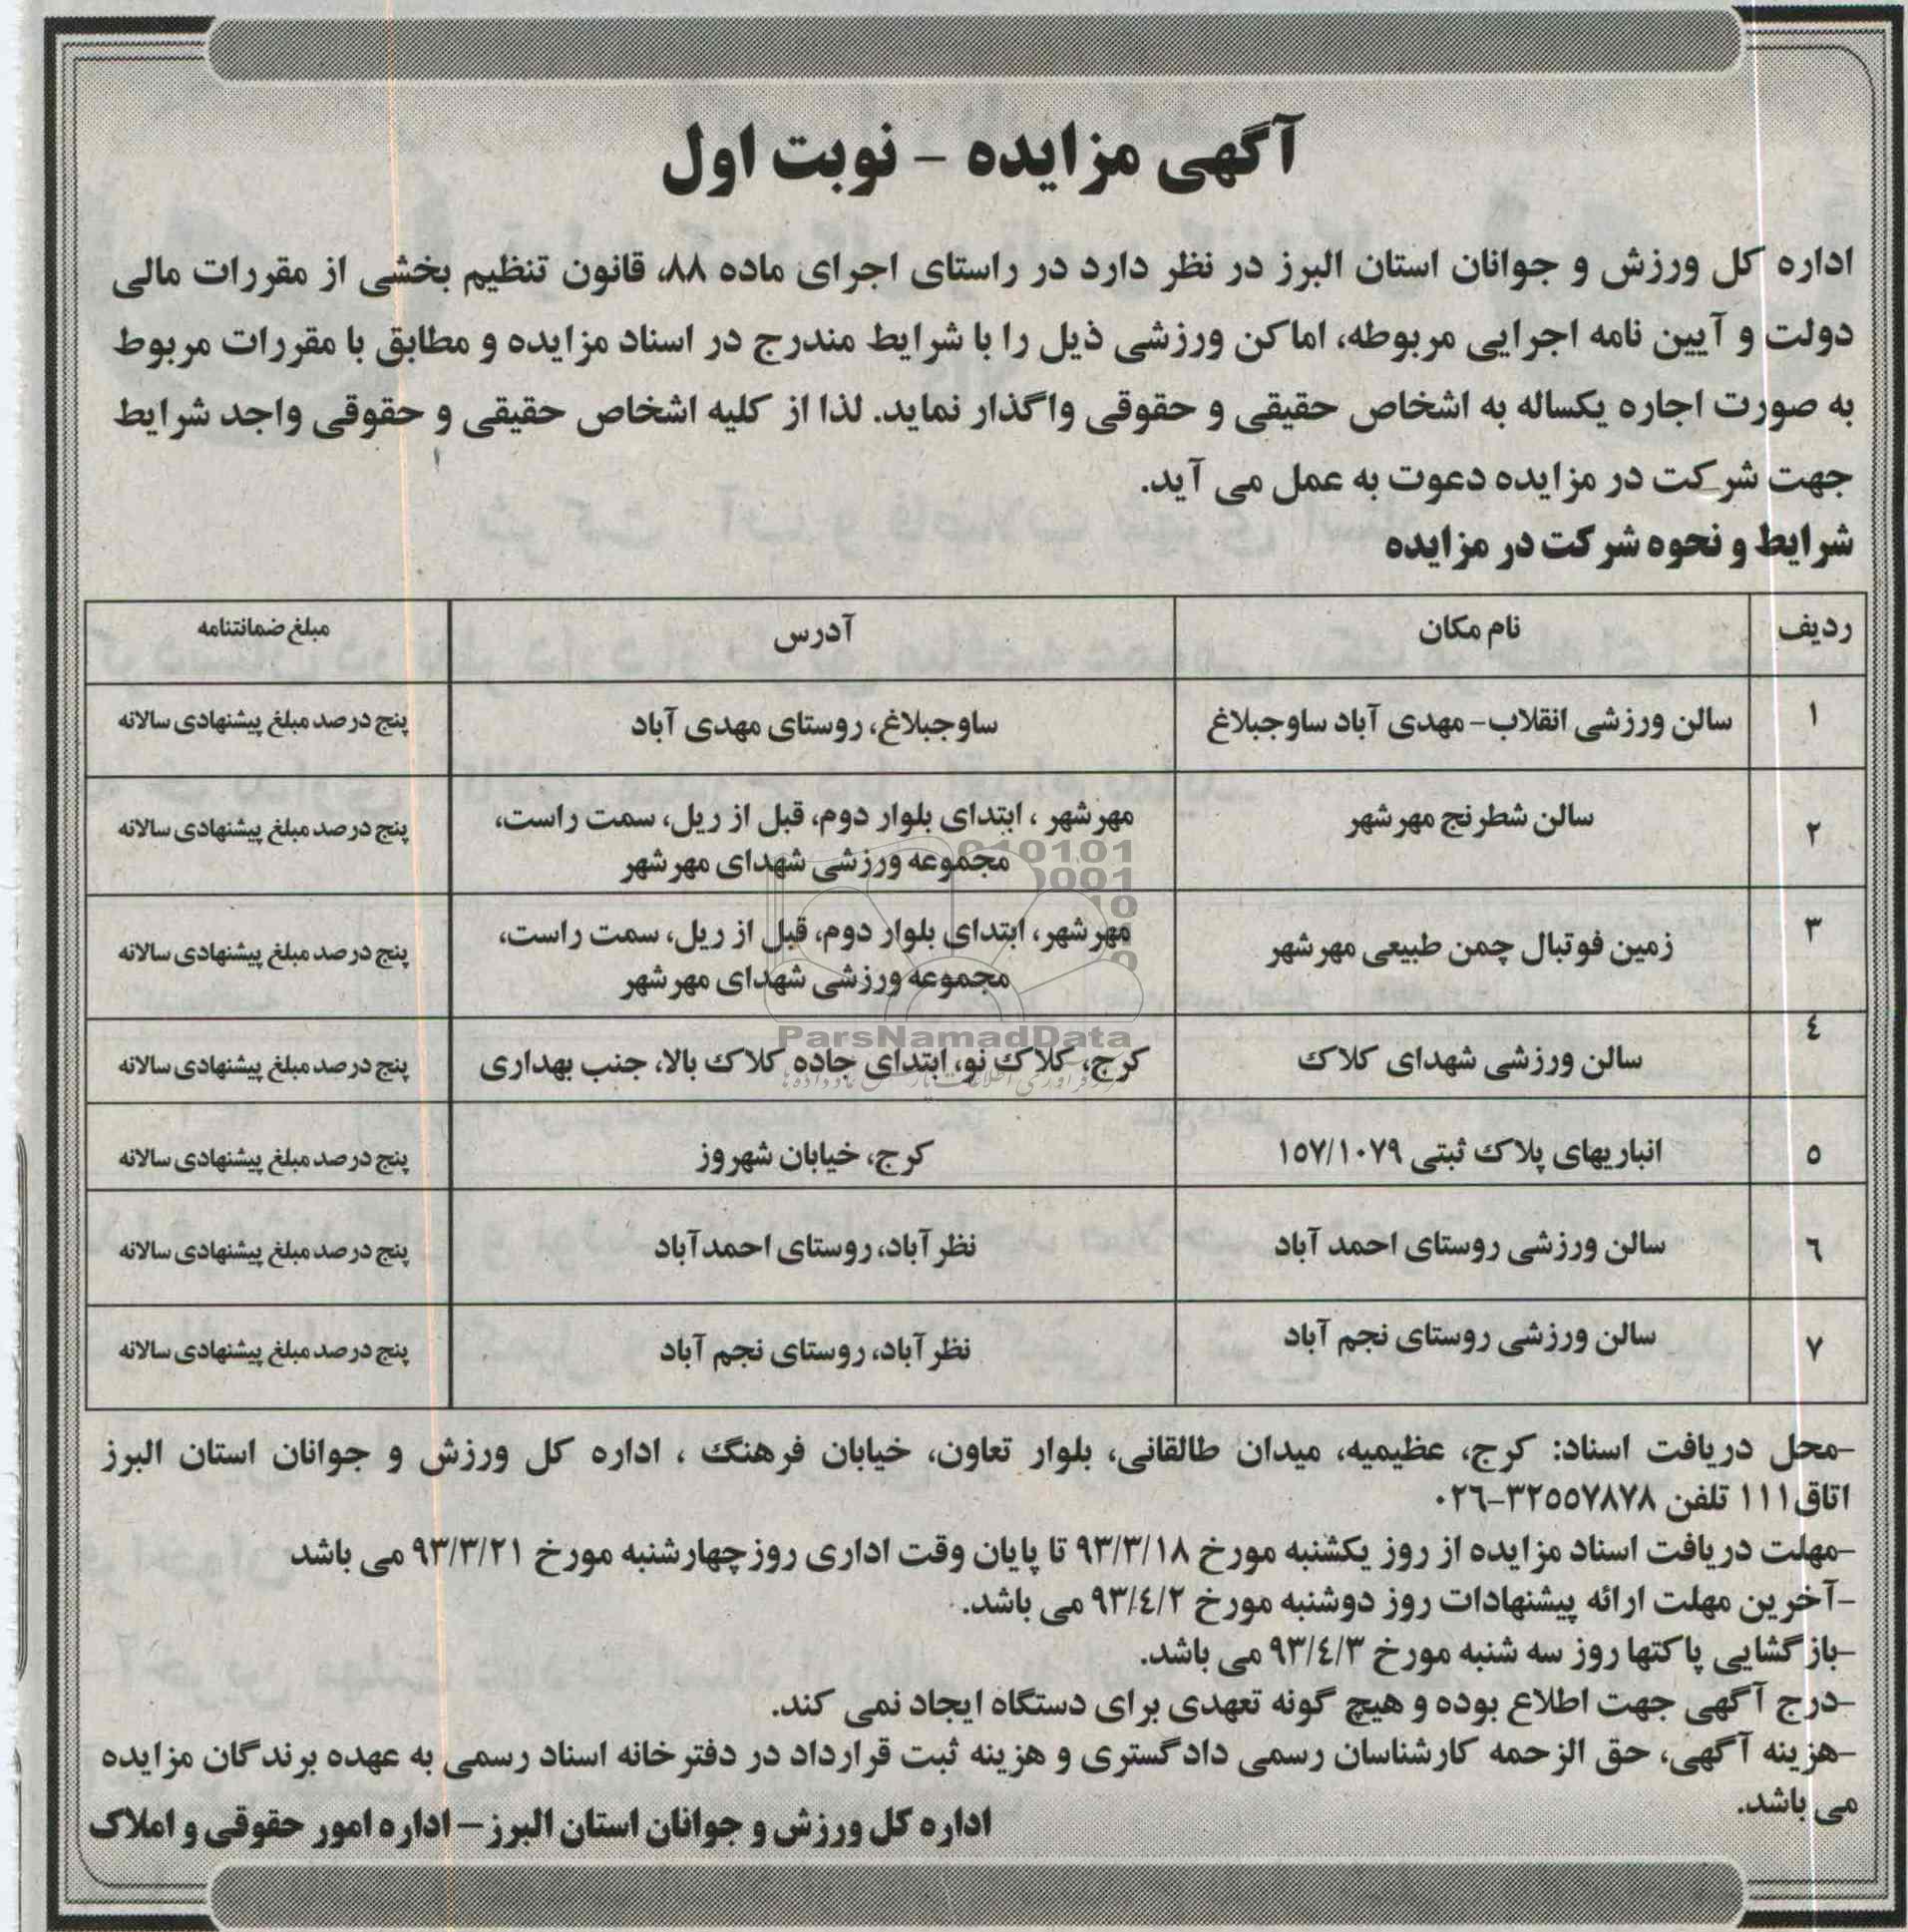 آگهی مزایده - نوبت اول
اداره کل ورزش و جوانان استان البرز در نظر دارد در راستای اجرای ماده ۸۸، قانون تنظیم بخشی از مقررات مالی
دولت و آیین نامه اجرایی مربوطه، اماکن ورزشی ذیل را با شرایط مندرج در اسناد مزایده و مطابق با مقررات مربوط
به صورت اجاره یکساله به اشخاص حقیقی و حقوقی واگذار نماید. لذا از کلیه اشخاص حقیقی و حقوقی واجد شرایط
جهت شرکت در مزایده دعوت به عمل می آید.
شرایط و نحوه شرکت در مزایده
ردیف نام مکان آدرس مبلغ ضمانتنامه
۱ سالن ورزشی انقلاب- مهدی آباد ساوجبلاغ ساوجبلاغ، روستای مهدی آباد پنج درصد مبلغ پیشنهادی سالانه
۲ سالن شطرنج مهرشهر مهرشهر ، ابتدای بلوار دوم، قبل از ریل، سمت راست، پنج درصد مبلغ پیشنهادی سالانه
مجموعه ورزشی شهدای مهرشهر
۳ زمین فوتبال چمن طبیعی مهرشهر مهرشهر، ابتدای بلوار دوم، قبل از ریل، سمت راست، پنج درصد مبلغ پیشنهادی سالانه
مجموعه ورزشی شهدای مهرشهر
٤ سالن ورزشی شهدای کلاک کرج، کلاک نو، ابتدای جاده کلاک بالا، جنب بهداری پنج درصد مبلغ پیشنهادی سالانه
٥ انباریهای پلاک ثبتی ۱٥۷/۱۰۷۹ کرج، خیابان شهروز پنج درصد مبلغ پیشنهادی سالانه
٦ سالن ورزشی روستای احمد آباد نظرآباد، روستای احمدآباد پنج درصد مبلغ پیشنهادی سالانه
۷ سالن ورزشی روستای نجم آباد نظرآباد، روستای نجم آباد پنج درصد مبلغ پیشنهادی سالانه
ParsNamadData
-محل دریافت اسناد: کرج، عظیمیه، میدان طالقانی، بلوار تعاون، خیابان فرهنگ ، اداره کل ورزش و جوانان استان البرز
اتاق۱۱۱ تلفن ۳۲٥٥۷۸۷۸-۰۲٦
-مهلت دریافت اسناد مزایده از روز یکشنبه مورخ ۹۳/۳/۱۸ تا پایان وقت اداری روزچهارشنبه مورخ ۹۳/۳/۲۱ می باشد
-آخرین مهلت ارائه پیشنهادات روز دوشنبه مورخ ۹۳/٤/۲ می باشد.
-بازگشایی پاکتها روز سه شنبه مورخ ۹۳/٤/۳ می باشد.
-درج آگهی جهت اطلاع بوده و هیچ گونه تعهدی برای دستگاه ایجاد نمی کند.
-هزینه آگهی، حق الزحمه کارشناسان رسمی دادگستری و هزینه ثبت قرارداد در دفترخانه اسناد رسمی به عهده برندگان مزایده
می باشد.
اداره کل ورزش و جوانان استان البرز – اداره امور حقوقی و املاک